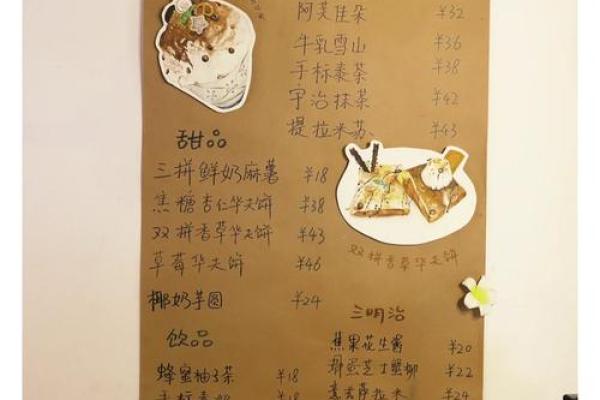 阿芙佳朵 ¥32
牛乳雪山 ¥36
手标泰茶 ¥38
宇治抹茶 ¥42
提拉米苏 ¥43
甜品
三拼鲜奶麻薯 ¥18
焦糖杏仁华夫饼 ¥38
双拼香草华夫饼 ¥43
草莓华夫饼 ¥46
椰奶芋圆 ¥24
双拼香草华夫饼
饮品
蜂蜜柚子茶 ¥18
手标泰奶 ¥18
三明治
蕉果花生酱 ¥20
芝士蟹柳 ¥22
萨拉米 ¥24